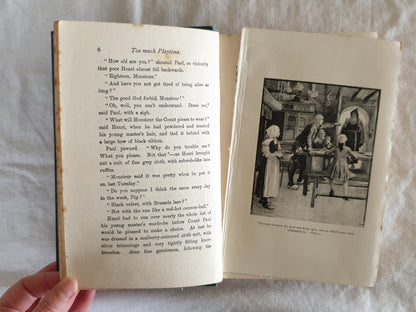 6 Too much Playtime.
"How old are you?" shouted Paul, so violently
that poor Henri almost fell backwards.
"Eighteen, Monsieur."
"And have you not got tired of being alive so
long?"
"The good God forbid, Monsieur!"
"Oh, well, you can't understand. Dress me,"
said Paul, with a sigh.
"What will Monsieur the Count please to wear?"
said Henri, when he had powdered and scented
his young master's hair, and tied it behind with
a large bow of black ribbon.
Paul yawned. "Why do you trouble me?
What you please. Not that"—as Henri brought
out a suit of fine grey cloth, with cobweb-like lace
ruffles.
"Monsieur said it was pretty when he put it
on last Tuesday."
"Do you suppose I think the same every day
in the week, Pig?"
"Black velvet, with Brussels lace?"
"Not with the sun like a red-hot cannon-ball."
Henri had to run over nearly the whole list of
his young master's wardrobe before Count Paul
would be pleased to make a choice. At last he
was dressed in a mulberry-coloured cloth suit, with
silver trimmings and very tightly fitting knee-
breeches. Some fine gentlemen, following the